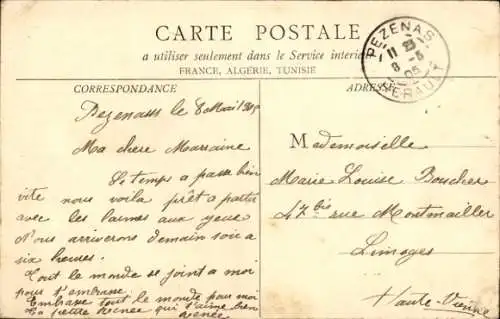 CARTE POSTALE
a utiliser seulement dans le Service interieur
FRANCE, ALGÉRIE, TUNISIE
CORRESPONDANCE
ADRESSE
PEZENAS
11 25
8 -5
05
HERAULT
Pezenas le 8 Mai 1905
Ma chere Marraine
Le temps a passe bien
vite nous voila prêt a partir
avec les larmes aux yeux
Nous arriverons demain soir a
six heures.
Tout le monde se joint a moi
pour t'embrasse.
Embrasse tout le monde pour moi
La petite Renée qui t'aime bien
Renée
Mademoiselle
Marie Louise Boucher
47 bis rue Montmailler
Limoges
Haute-Vienne